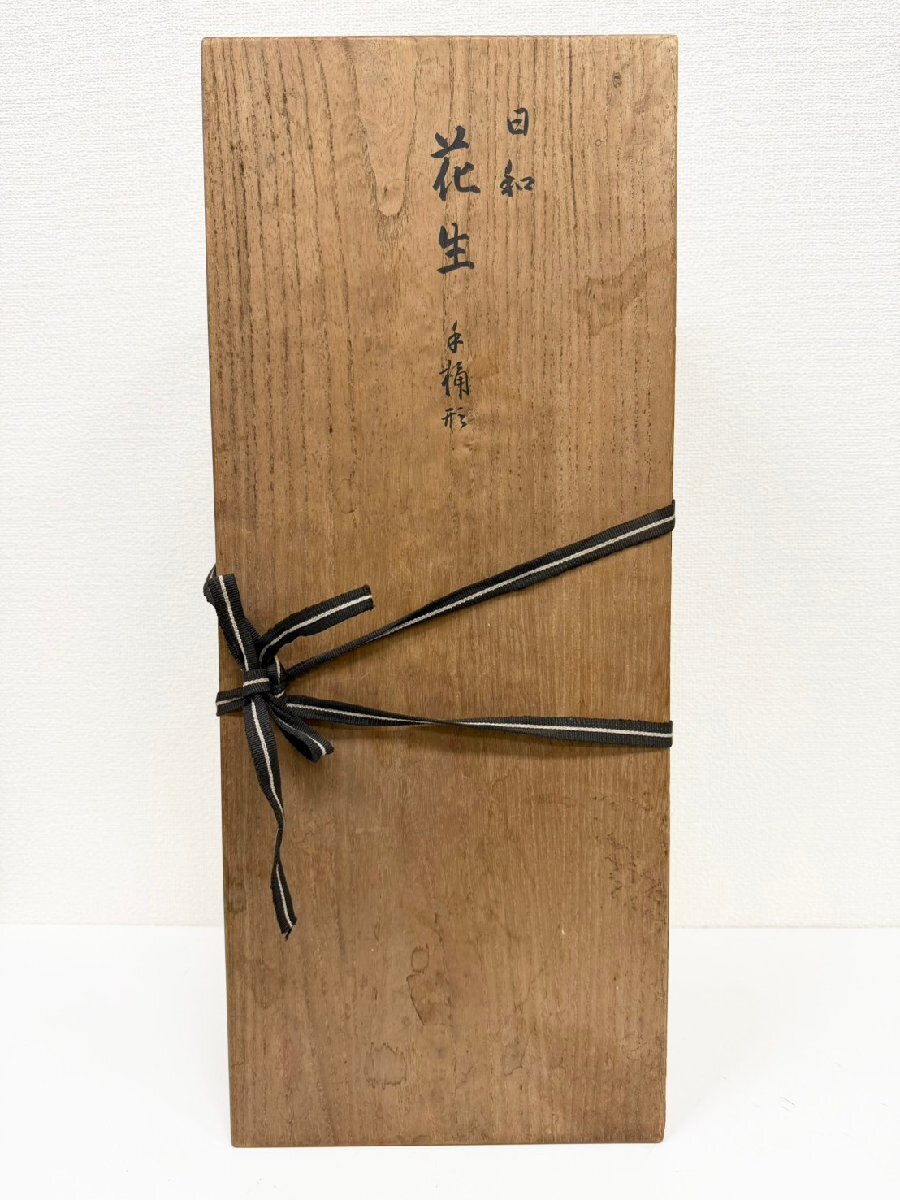 日和
花生
手桶形